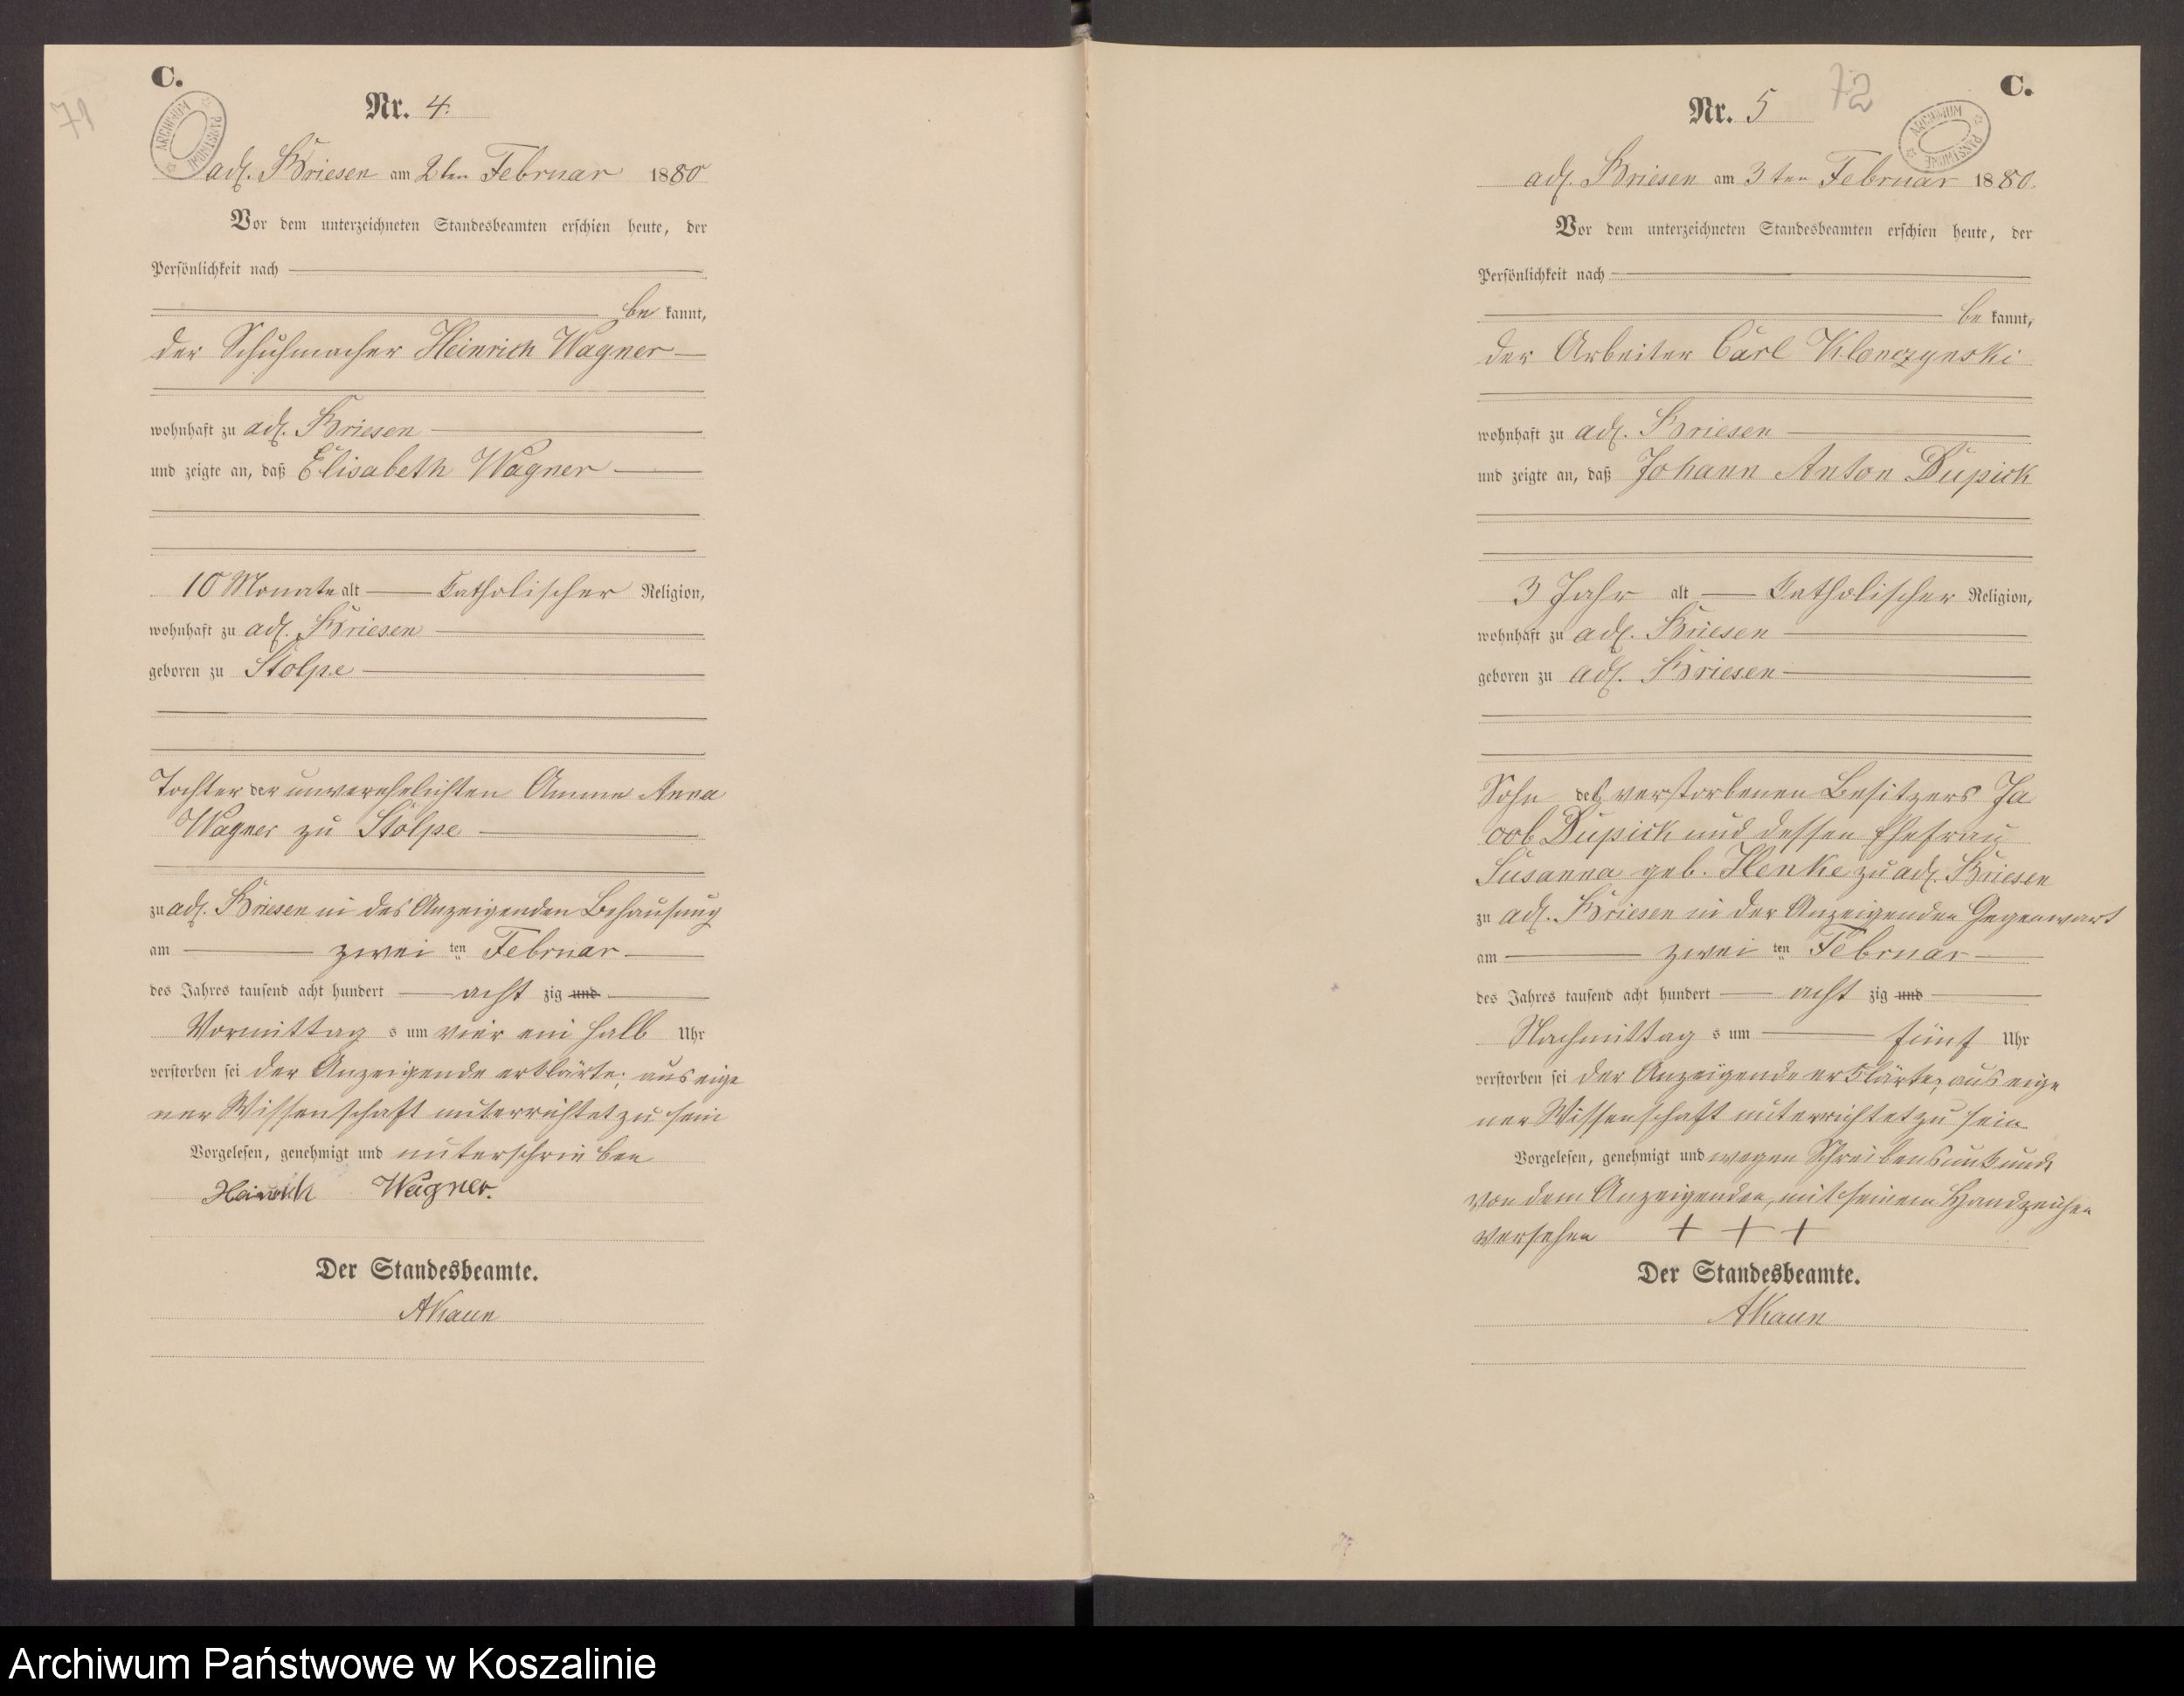 C.
71
Nr. 4.
ARCHIWUM PAŃSTWOWE
adl. Briesen am 2ten Februar 1880
Vor dem unterzeichneten Standesbeamten erschien heute, der
Persönlichkeit nach
be kannt,
der Schuhmacher Heinrich Wagner
wohnhaft zu adl. Briesen
und zeigte an, daß Elisabeth Wagner
10 Monate alt katholischer Religion,
wohnhaft zu adl. Briesen
geboren zu Stolpe
Tochter der unverehelichten Amme Anna
Wagner zu Stolpe
zu adl. Briesen in des Anzeigenden Behausung
am zwei ten Februar
des Jahres tausend acht hundert acht zig und
Vormittag s um vier ein halb Uhr
verstorben sei der Anzeigende erklärte, aus eige
ner Wissenschaft unterrichtet zu sein
Vorgelesen, genehmigt und unterschrieben
Heinrich Wagner.
Der Standesbeamte.
AKaun
C.
72
Nr. 5
ARCHIWUM PAŃSTWOWE
adl. Briesen am 3ten Februar 1880.
Vor dem unterzeichneten Standesbeamten erschien heute, der
Persönlichkeit nach
be kannt,
der Arbeiter Carl Klonczynski
wohnhaft zu adl. Briesen
und zeigte an, daß Johann Anton Dupick
3 Jahr alt katholischer Religion,
wohnhaft zu adl. Briesen
geboren zu adl. Briesen
Sohn des verstorbenen Besitzers Ja
cob Dupick und dessen Ehefrau
Susanna geb. Henke zu adl. Briesen
zu adl. Briesen in der Anzeigenden Gegenwart
am zwei ten Februar
des Jahres tausend acht hundert acht zig und
Nachmittag s um fünf Uhr
verstorben sei der Anzeigende erklärte, aus eige
ner Wissenschaft unterrichtet zu sein
Vorgelesen, genehmigt und wegen Schreibensunkunde
von dem Anzeigenden, mit seinem Handzeichen
versehen + + +
Der Standesbeamte.
AKaun
Archiwum Państwowe w Koszalinie